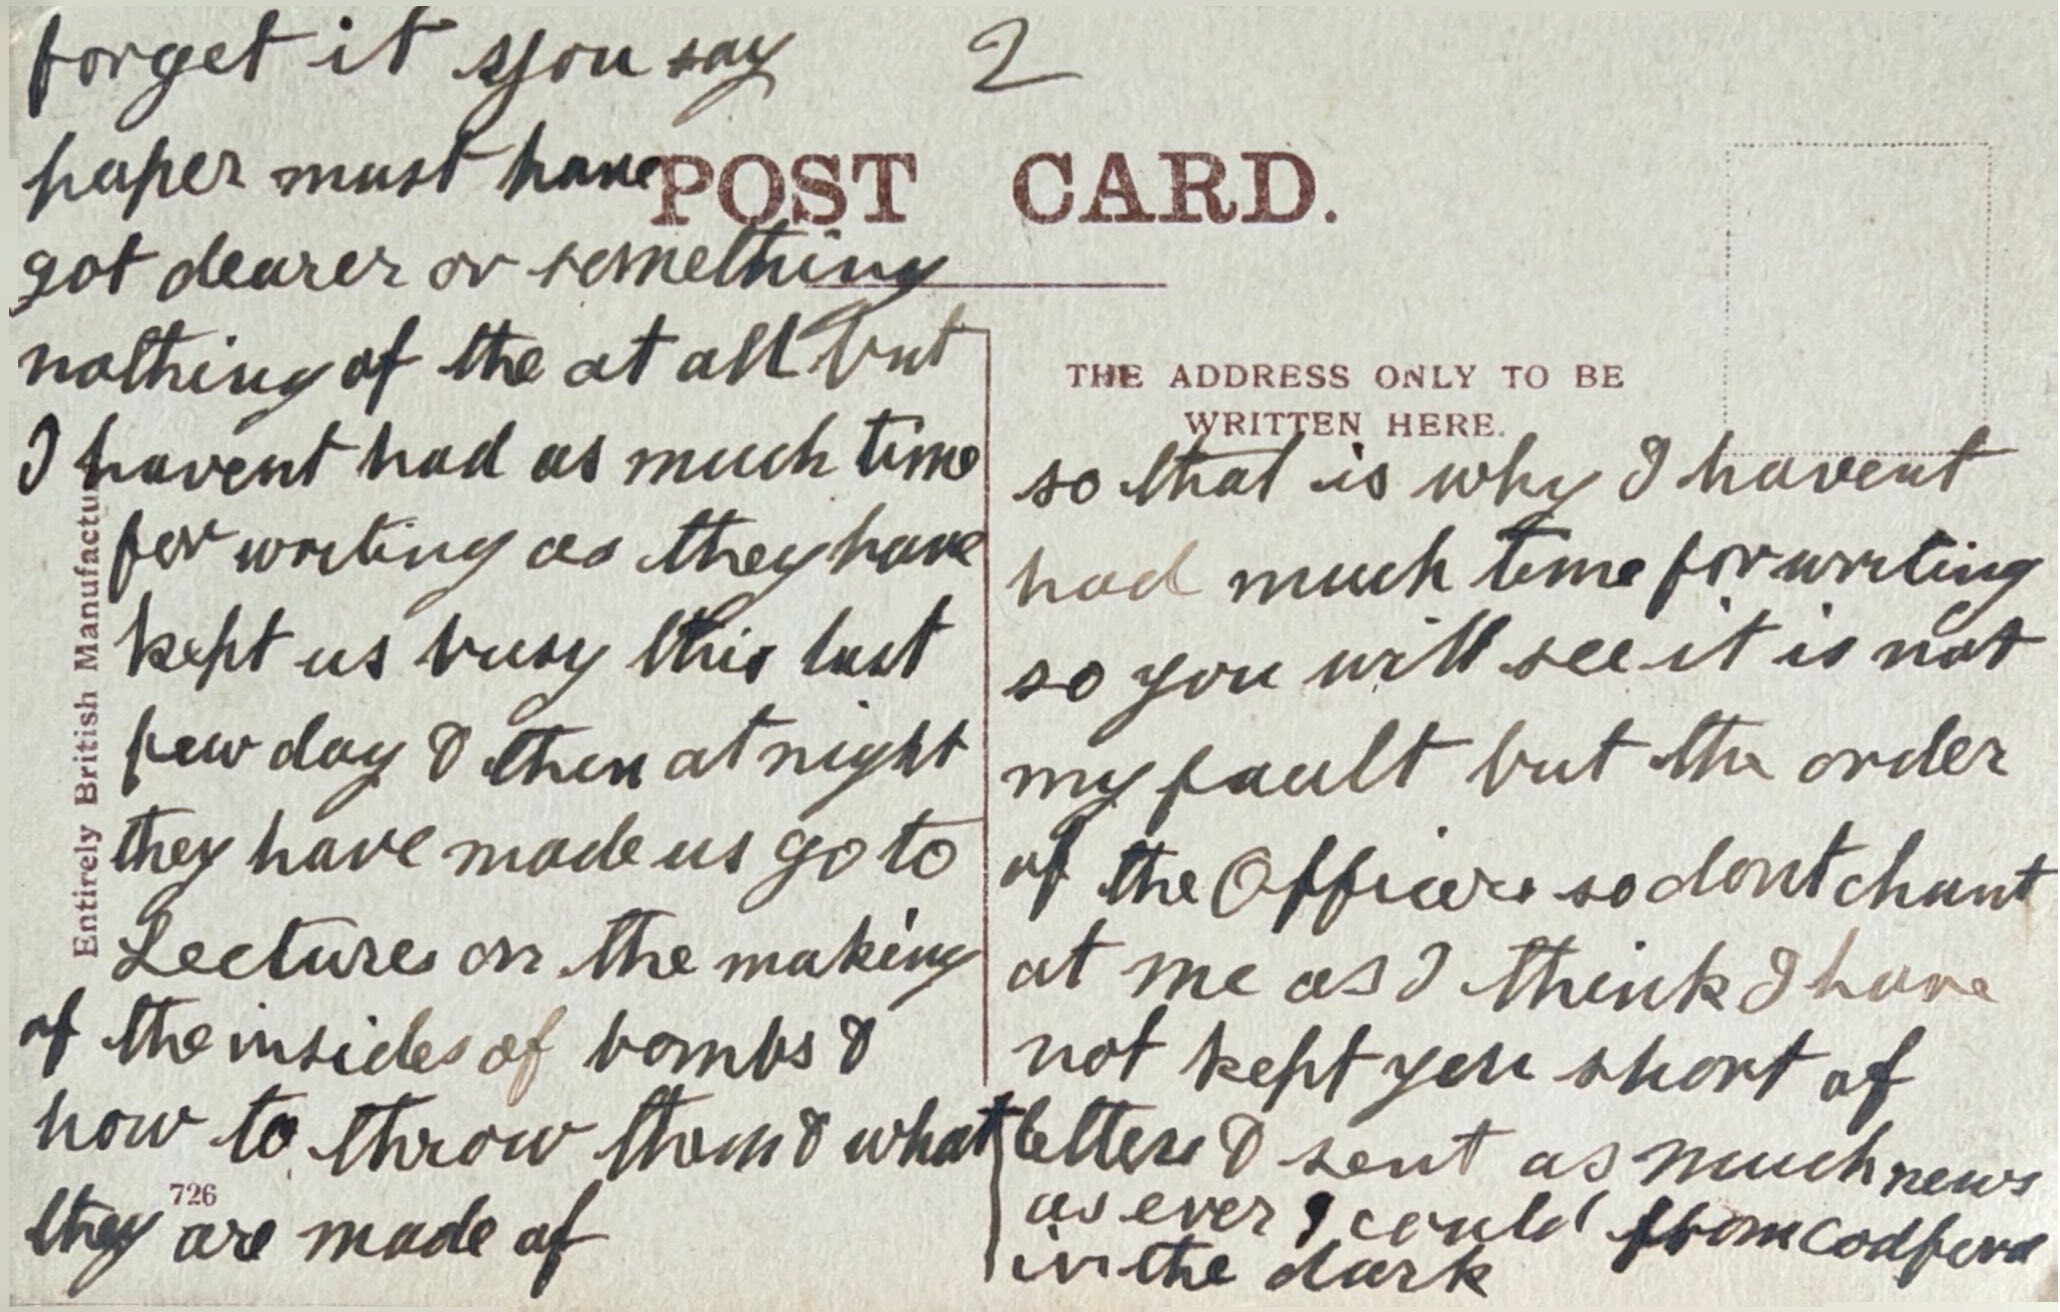 forget it you say 2
paper must have
got dearer or something
nothing of the at all but
I havent had as much time
for writing as they have
kept us busy this last
few day & then at night
they have made us go to
Lectures on the making
of the insides of bombs &
how to throw them & what
they are made of
POST CARD.
THE ADDRESS ONLY TO BE
WRITTEN HERE.
so that is why I havent
had much time for writing
so you will see it is not
my fault but the order
of the Officers so dont chunt
at me as I think I have
not kept you short of
letters & sent as much news
as ever I could from Codford
in the dark
Entirely British Manufactu
726